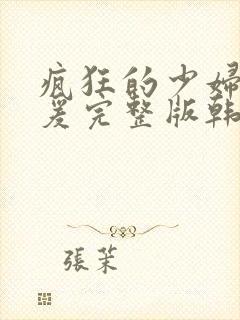 疯狂的少婦
爰完整版韩
張茉